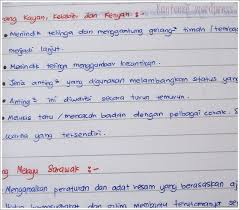 ang Kayan, Kelabit dan Kenyah :-
Menindik telinga dan menggantung gelang² timah (tembaga
menjadi lanjut.
Menindik telinga menggambar kecantikan.
Jenis anting² yang digunakan melambangkan status yang
Anting² ini diwarisi secara turun temurun.
Melukis tatu / mencacah badan dengan pelbagai corak. S
warna yang tersendiri.
ng Melayu Sarawak :-
Mengamalkan peraturan dan adat resam yang berasaskan aj